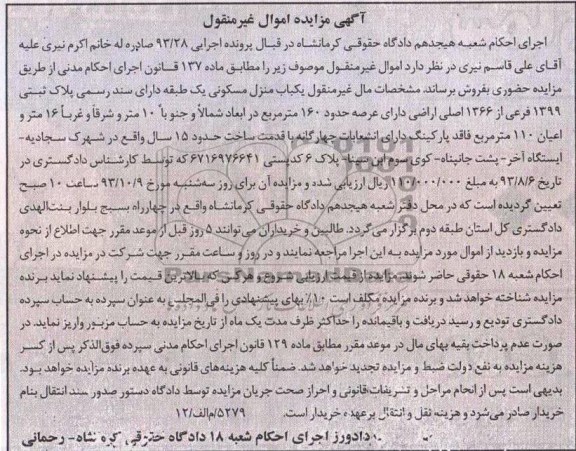 آگهی مزایده اموال غیرمنقول
اجرای احکام شعبه هیجدهم دادگاه حقوقی کرمانشاه در قبال پرونده اجرایی ۹۳/۲۸ صادره له خانم اکرم نیری علیه
آقای علی قاسم نیری در نظر دارد اموال غیرمنقول موصوف زیر را مطابق ماده ۱۳۷ قانون اجرای احکام مدنی از طریق
مزایده حضوری بفروش برساند. مشخصات مال غیرمنقول یکباب منزل مسکونی یک طبقه دارای سند رسمی پلاک ثبتی
۱۳۹۹ فرعی از ۱۳۶۶ اصلی اراضی دارای عرصه حدود ۱۶۰ مترمربع در ابعاد شمالاً و جنوباً ۱۰ متر و شرقاً و غرباً ۱۶ متر و
اعیان ۱۱۰ مترمربع فاقد پارکینگ دارای انشعابات چهارگانه با قدمت ساخت حدود ۱۵ سال واقع در شهرک سجادیه-
ایستگاه آخر- پشت جانپناه- کوی سوم ابن سینا- پلاک ۶ کدپستی ۶۷۱۶۹۷۶۶۴۱ که توسط کارشناس دادگستری در
تاریخ ۹۳/۸/۶ به مبلغ ۱۱۰/۰۰۰/۰۰۰ ریال ارزیابی شده و مزایده آن برای روز سه‌شنبه مورخ ۹۳/۱۰/۹ ساعت ۱۰ صبح
تعیین گردیده است که در محل دفتر شعبه هیجدهم دادگاه حقوقی کرمانشاه واقع در چهارراه بسیج بلوار بنت‌الهدی
دادگستری کل استان طبقه دوم برگزار می گردد. طالبین و خریداران می‌توانند ۵ روز قبل از موعد مقرر جهت اطلاع از نحوه
مزایده و بازدید از اموال مورد مزایده به این اجرا مراجعه نمایند و در روز و ساعت مقرر جهت شرکت در مزایده در اجرای
احکام شعبه ۱۸ حقوقی حاضر شوند. مزایده از قیمت ارزیابی شروع و هرکس که بالاترین قیمت را پیشنهاد نماید برنده
مزایده شناخته خواهد شد و برنده مزایده مکلف است ۱۰٪ بهای پیشنهادی را فی‌المجلس به عنوان سپرده به حساب سپرده
دادگستری تودیع و رسید دریافت و باقیمانده را حداکثر ظرف مدت یک ماه از تاریخ مزایده به حساب مزبور واریز نماید. در
صورت عدم پرداخت بقیه بهای مال در موعد مقرر مطابق ماده ۱۲۹ قانون اجرای احکام مدنی سپرده فوق‌الذکر پس از کسر
هزینه مزایده به نفع دولت ضبط و مزایده تجدید خواهد شد. ضمناً کلیه هزینه‌های قانونی به عهده برنده مزایده خواهد بود.
بدیهی است پس از انجام مراحل و تشریفات قانونی و احراز صحت جریان مزایده توسط دادگاه دستور صدور سند انتقال بنام
خریدار صادر می‌شود و هزینه نقل و انتقال برعهده خریدار است. ۵۲۷۹/م‌الف/۱۲
دادورز اجرای احکام شعبه ۱۸ دادگاه حقوقی کرمانشاه- رحمانی